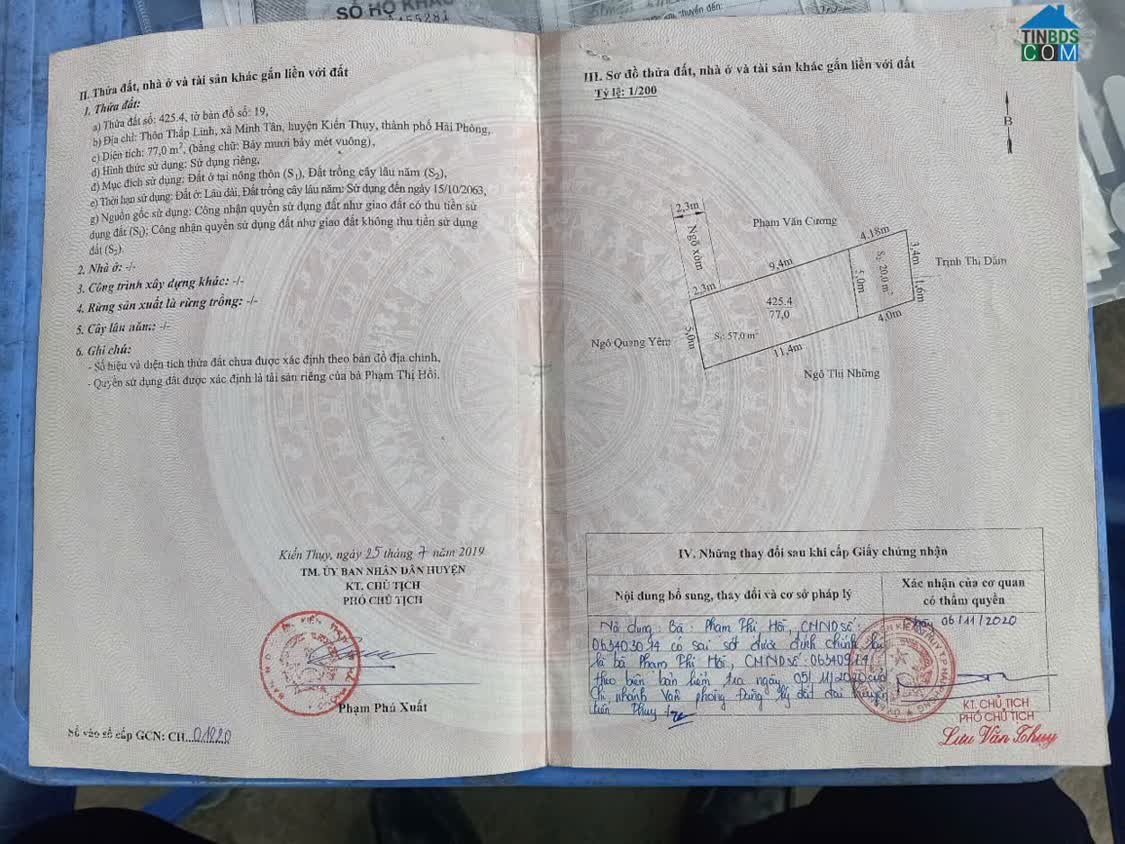 SỔ HỘ KHẨU
TINBDS
COM
II. Thửa đất, nhà ở và tài sản khác gắn liền với đất
1. Thửa đất:
a) Thửa đất số: 425.4, tờ bản đồ số: 19,
b) Địa chỉ: Thôn Thấp Linh, xã Minh Tân, huyện Kiến Thụy, thành phố Hải Phòng,
c) Diện tích: 77,0 m², (bằng chữ: Bảy mươi bảy mét vuông),
d) Hình thức sử dụng: Sử dụng riêng,
đ) Mục đích sử dụng: Đất ở tại nông thôn (S1), Đất trồng cây lâu năm (S2),
e) Thời hạn sử dụng: Đất ở: Lâu dài, Đất trồng cây lâu năm: Sử dụng đến ngày 15/10/2063,
g) Nguồn gốc sử dụng: Công nhận quyền sử dụng đất như giao đất có thu tiền sử
dụng đất (S1); Công nhận quyền sử dụng đất như giao đất không thu tiền sử dụng
đất (S2).
2. Nhà ở: -/-
3. Công trình xây dựng khác: -/-
4. Rừng sản xuất là rừng trồng: -/-
5. Cây lâu năm: -/-
6. Ghi chú:
- Số hiệu và diện tích thửa đất chưa được xác định theo bản đồ địa chính,
- Quyền sử dụng đất được xác định là tài sản riêng của bà Phạm Thị Hồi.
Kiến Thụy, ngày 25 tháng 7 năm 2019
TM. ỦY BAN NHÂN DÂN HUYỆN
KT. CHỦ TỊCH
PHÓ CHỦ TỊCH
Phạm Phú Xuất
Số vào sổ cấp GCN: CH...01820
III. Sơ đồ thửa đất, nhà ở và tài sản khác gắn liền với đất
Tỷ lệ: 1/200
B
2,3m
Ngõ xóm
Phạm Văn Cương
4,18m
3,4m
Trịnh Thị Dăm
9,4m
S2: 20,0 m²
5,0m
1,6m
2,3m
425.4
77,0
4,0m
5,0m
S1: 57,0 m²
Ngô Quang Yêm
11,4m
Ngô Thị Những
IV. Những thay đổi sau khi cấp Giấy chứng nhận
Nội dung bổ sung, thay đổi và cơ sở pháp lý
Xác nhận của cơ quan
có thẩm quyền
Nội dung: Bà: Phạm Thị Hồi, CMND số:
có sai sót được đính chính
là bà Phạm Thị Hồi, CMND số:
theo biên bản kiểm tra ngày 05/11/2020 của
Chi nhánh Văn phòng Đăng ký đất đai huyện
Kiến Thụy
Ngày 06/11/2020
KT. CHỦ TỊCH
PHÓ CHỦ TỊCH
Lưu Văn Thụy